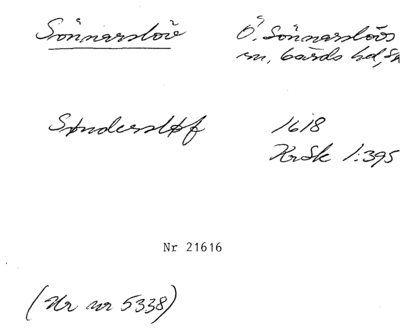 Sönnarslöv Ö. Sönnarslövs
sn, Gärds hd, Sk
Søndersløf 1618
KrSk 1:395
Nr 21616
(Ur nr 5338)